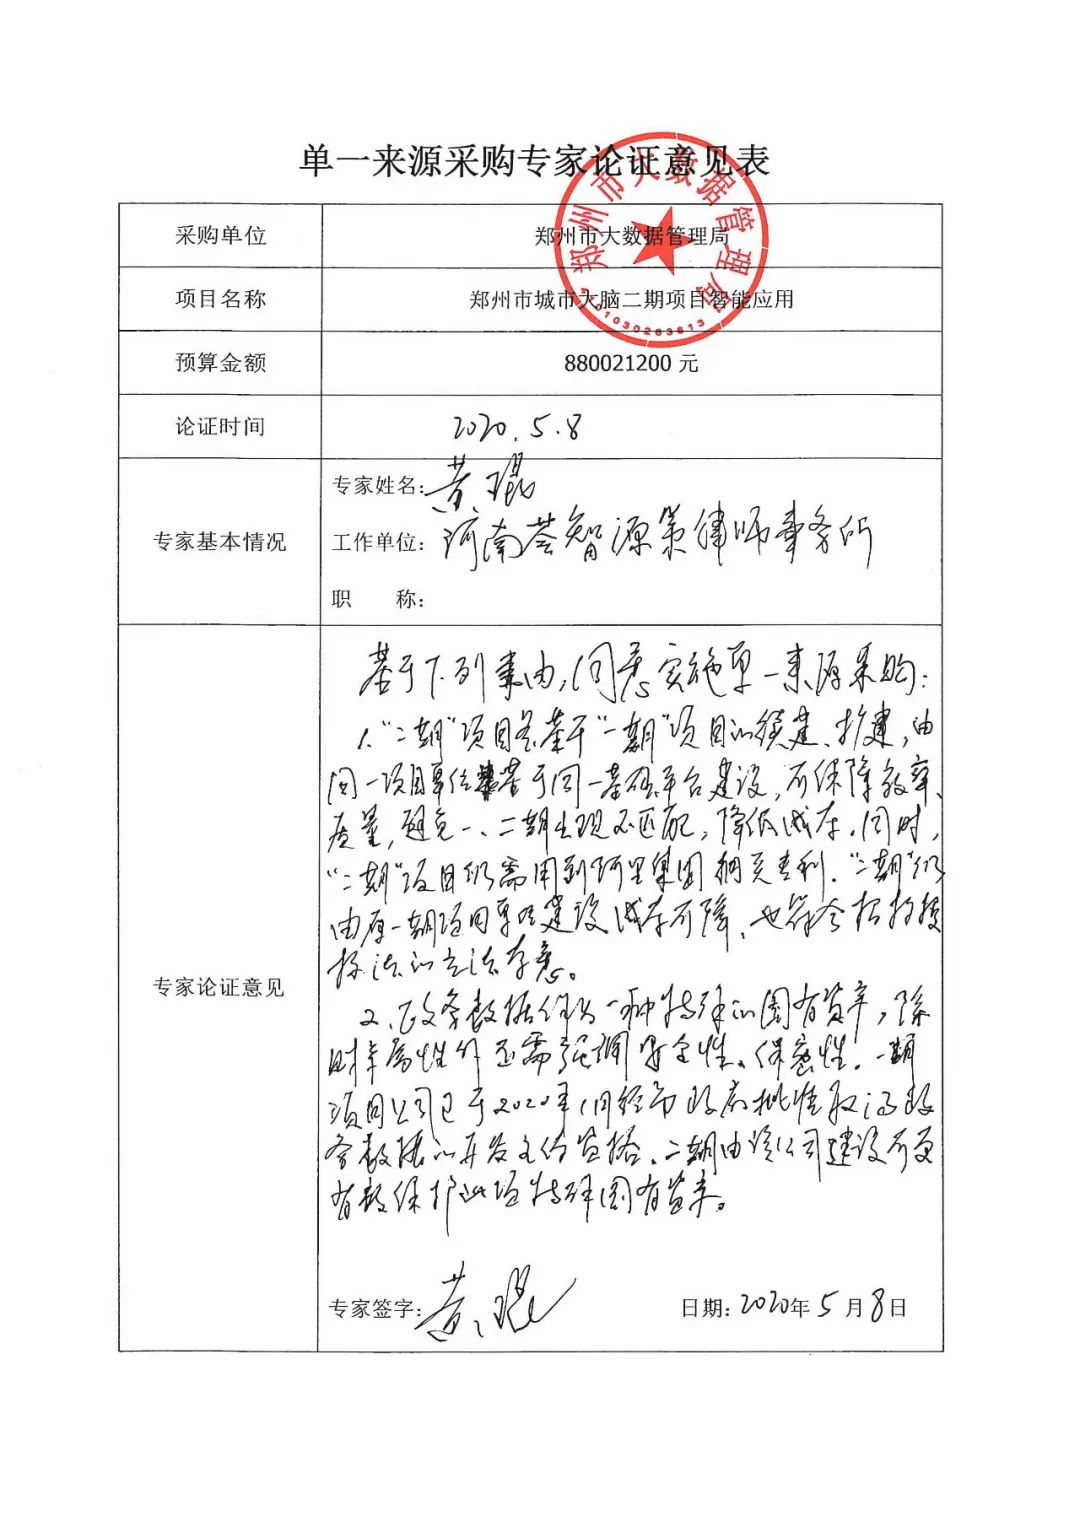 单一来源采购专家论证意见表
郑州市大数据管理局
采购单位 郑州市大数据管理局
项目名称 郑州市城市大脑二期项目智能应用
预算金额 880021200 元
论证时间 2020.5.8
专家基本情况
专家姓名: 黄琨
工作单位: 河南荟智源策律师事务所
职 称:
专家论证意见
基于下列事由,同意实施单一来源采购:
1、“二期”项目是基于“一期”项目的续建、扩建,由
同一项目单位基于同一基础平台建设,可保障效率、
质量,避免一、二期出现不匹配,降低成本.同时,
“二期”项目仍需用到阿里集团相关专利.“二期”仍
由原一期项目单位建设成本可降、也符合招投标
法的立法本意。
2、政务数据作为一种特殊的国有资产,除
财产属性外还需强调安全性、保密性!一期
项目公司已于2020年1月经市政府批准取得政
务数据的开发主体资格、二期由该公司建设可更
有效保护此项特殊国有资产。
专家签字: 黄琨 日期: 2020年5月8日